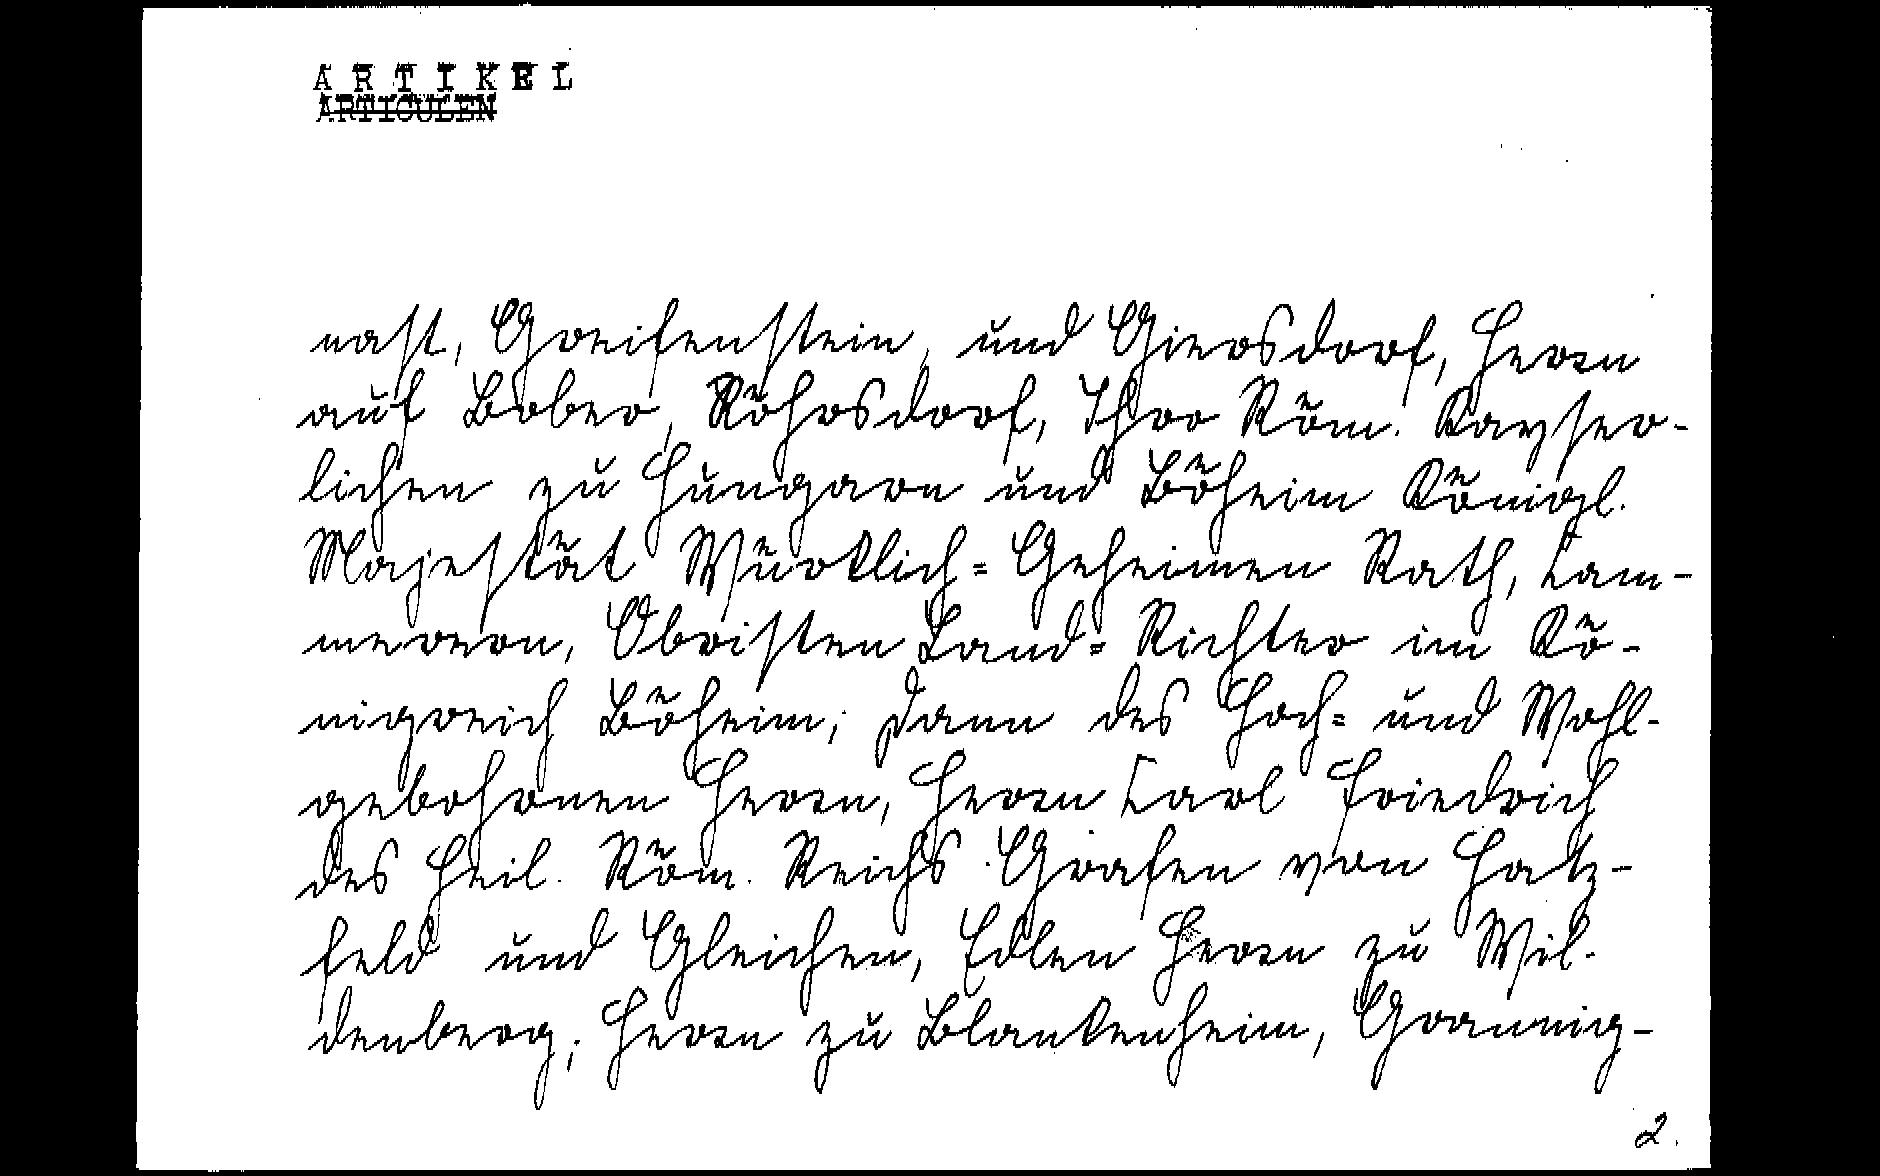 ARTIKEL
ARTICULEN
nast, Greifenstein, und Giersdorf, Herrn
auf Bober, Röhrsdorf, Ihro Röm. Kayser-
lichen zu Hungarn und Böheim Königl.
Majestät Würklich= Geheimen Rath, Cam-
merern, Obristen Land= Richter im Kö-
nigreich Böheim; dann des Hoch= und Wohl-
gebohrnen Herrn, Herrn Carl Friedrich
des Heil. Röm. Reichs Grafen von Hatz-
feld und Gleichen, Edlen Herrn zu Wil-
denberg; Herrn zu Blankenheim,
2.